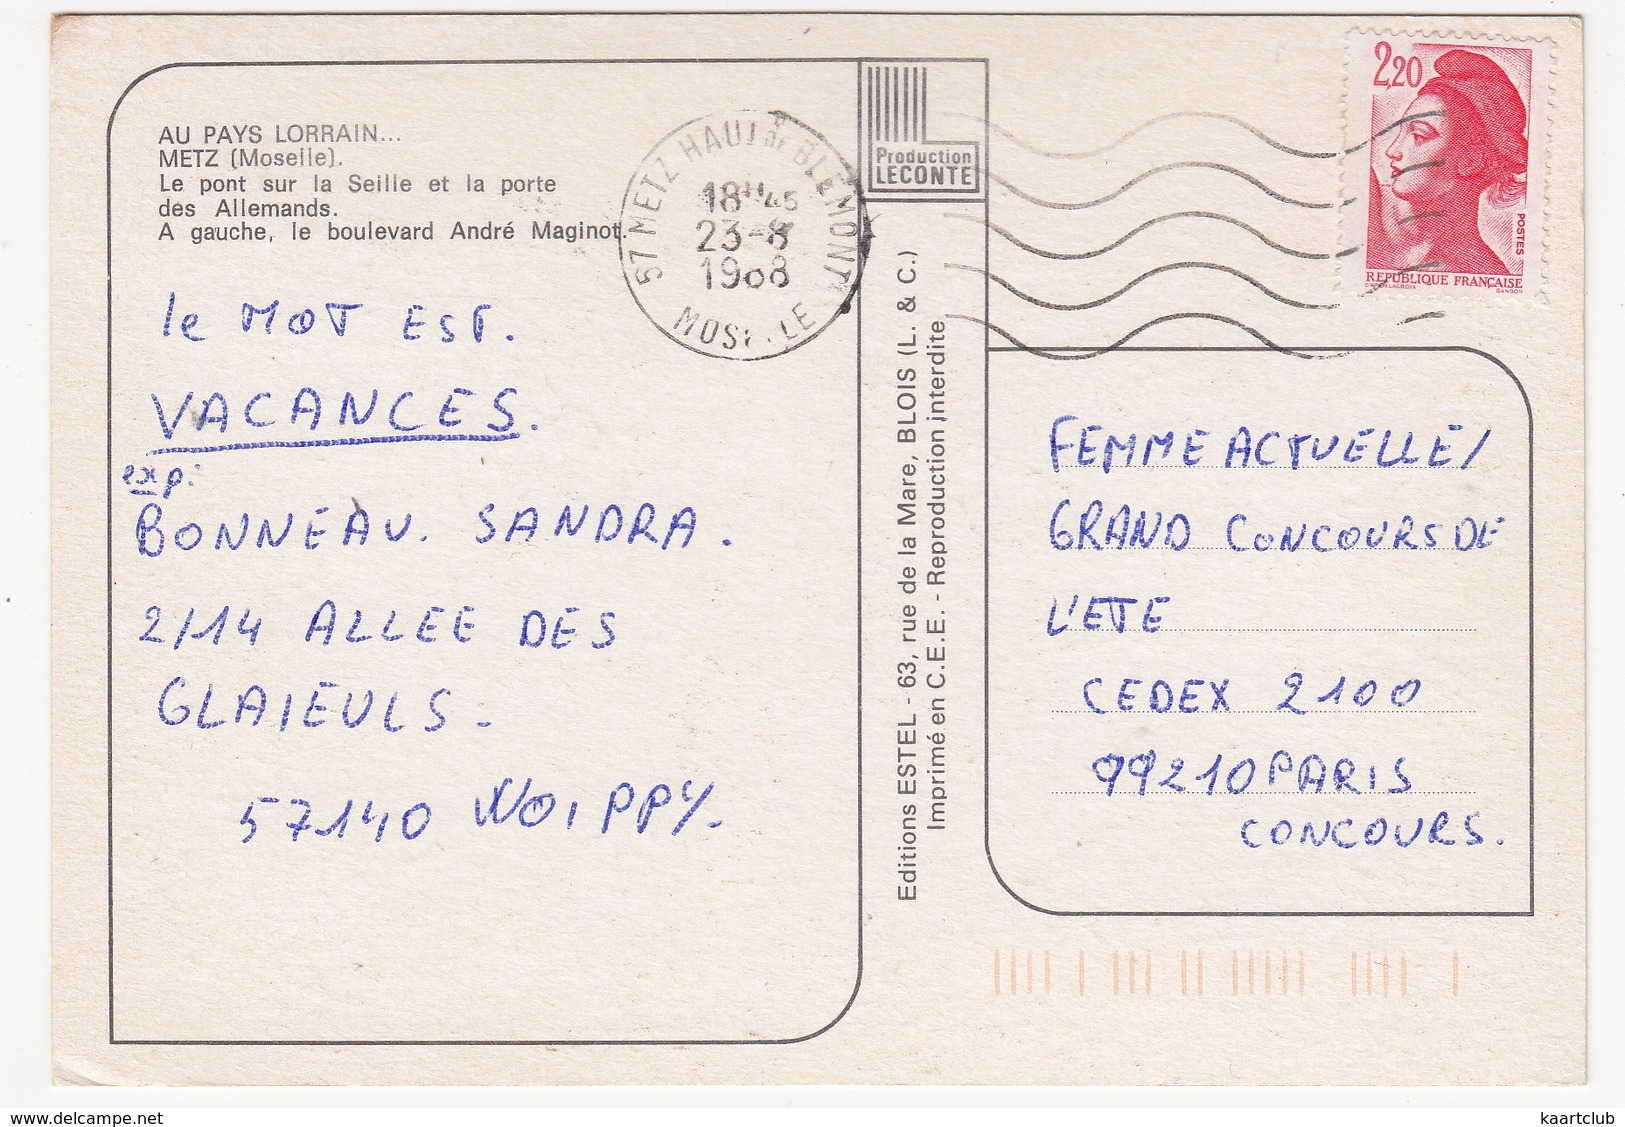 AU PAYS LORRAIN...
METZ (Moselle).
Le pont sur la Seille et la porte
des Allemands.
A gauche, le boulevard André Maginot.
le MOT EST.
VACANCES.
exp:
BONNEAU. SANDRA.
2/14 ALLEE DES
GLAIEULS.
57140 WOIPPY.
57 METZ HAUT DE BLEMONT
18H45
23-8
1988
MOSELLE
Production
LECONTE
Editions ESTEL - 63, rue de la Mare, BLOIS (L. & C.)
Imprimé en C.E.E. - Reproduction interdite
2,20
POSTES
REPUBLIQUE FRANÇAISE
D'APRES DELACROIX GANDON
FEMME ACTUELLE/
GRAND CONCOURS DE
L'ETE
CEDEX 2100
99210 PARIS
CONCOURS.
www.delcampe.net
kaartclub